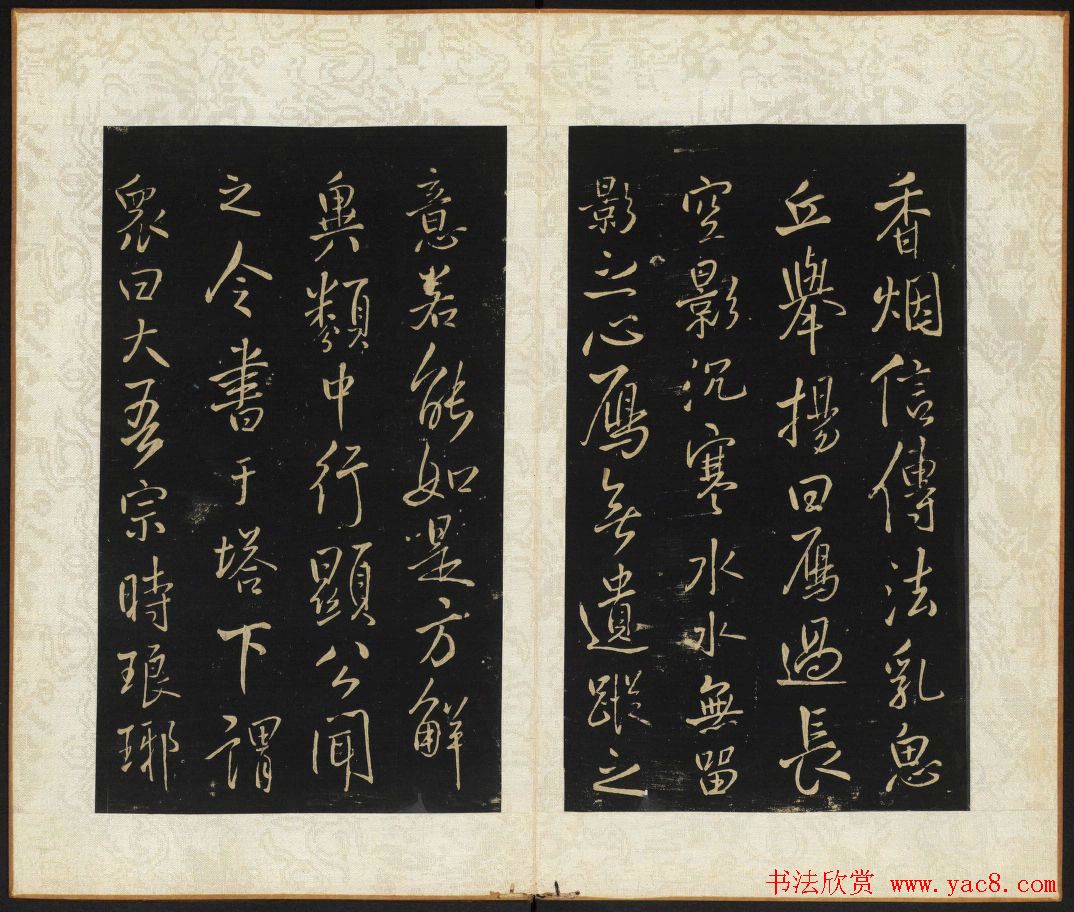 香烟信傳法乳思
丘舉揚曰鴈過長
空影沉寒水水無留
影之心鴈無遺蹤之
意若能如是方解
異類中行顯公聞
之令書于塔下謂
眾曰大吾宗時瑯
琊
书法欣赏 www.yac8.com